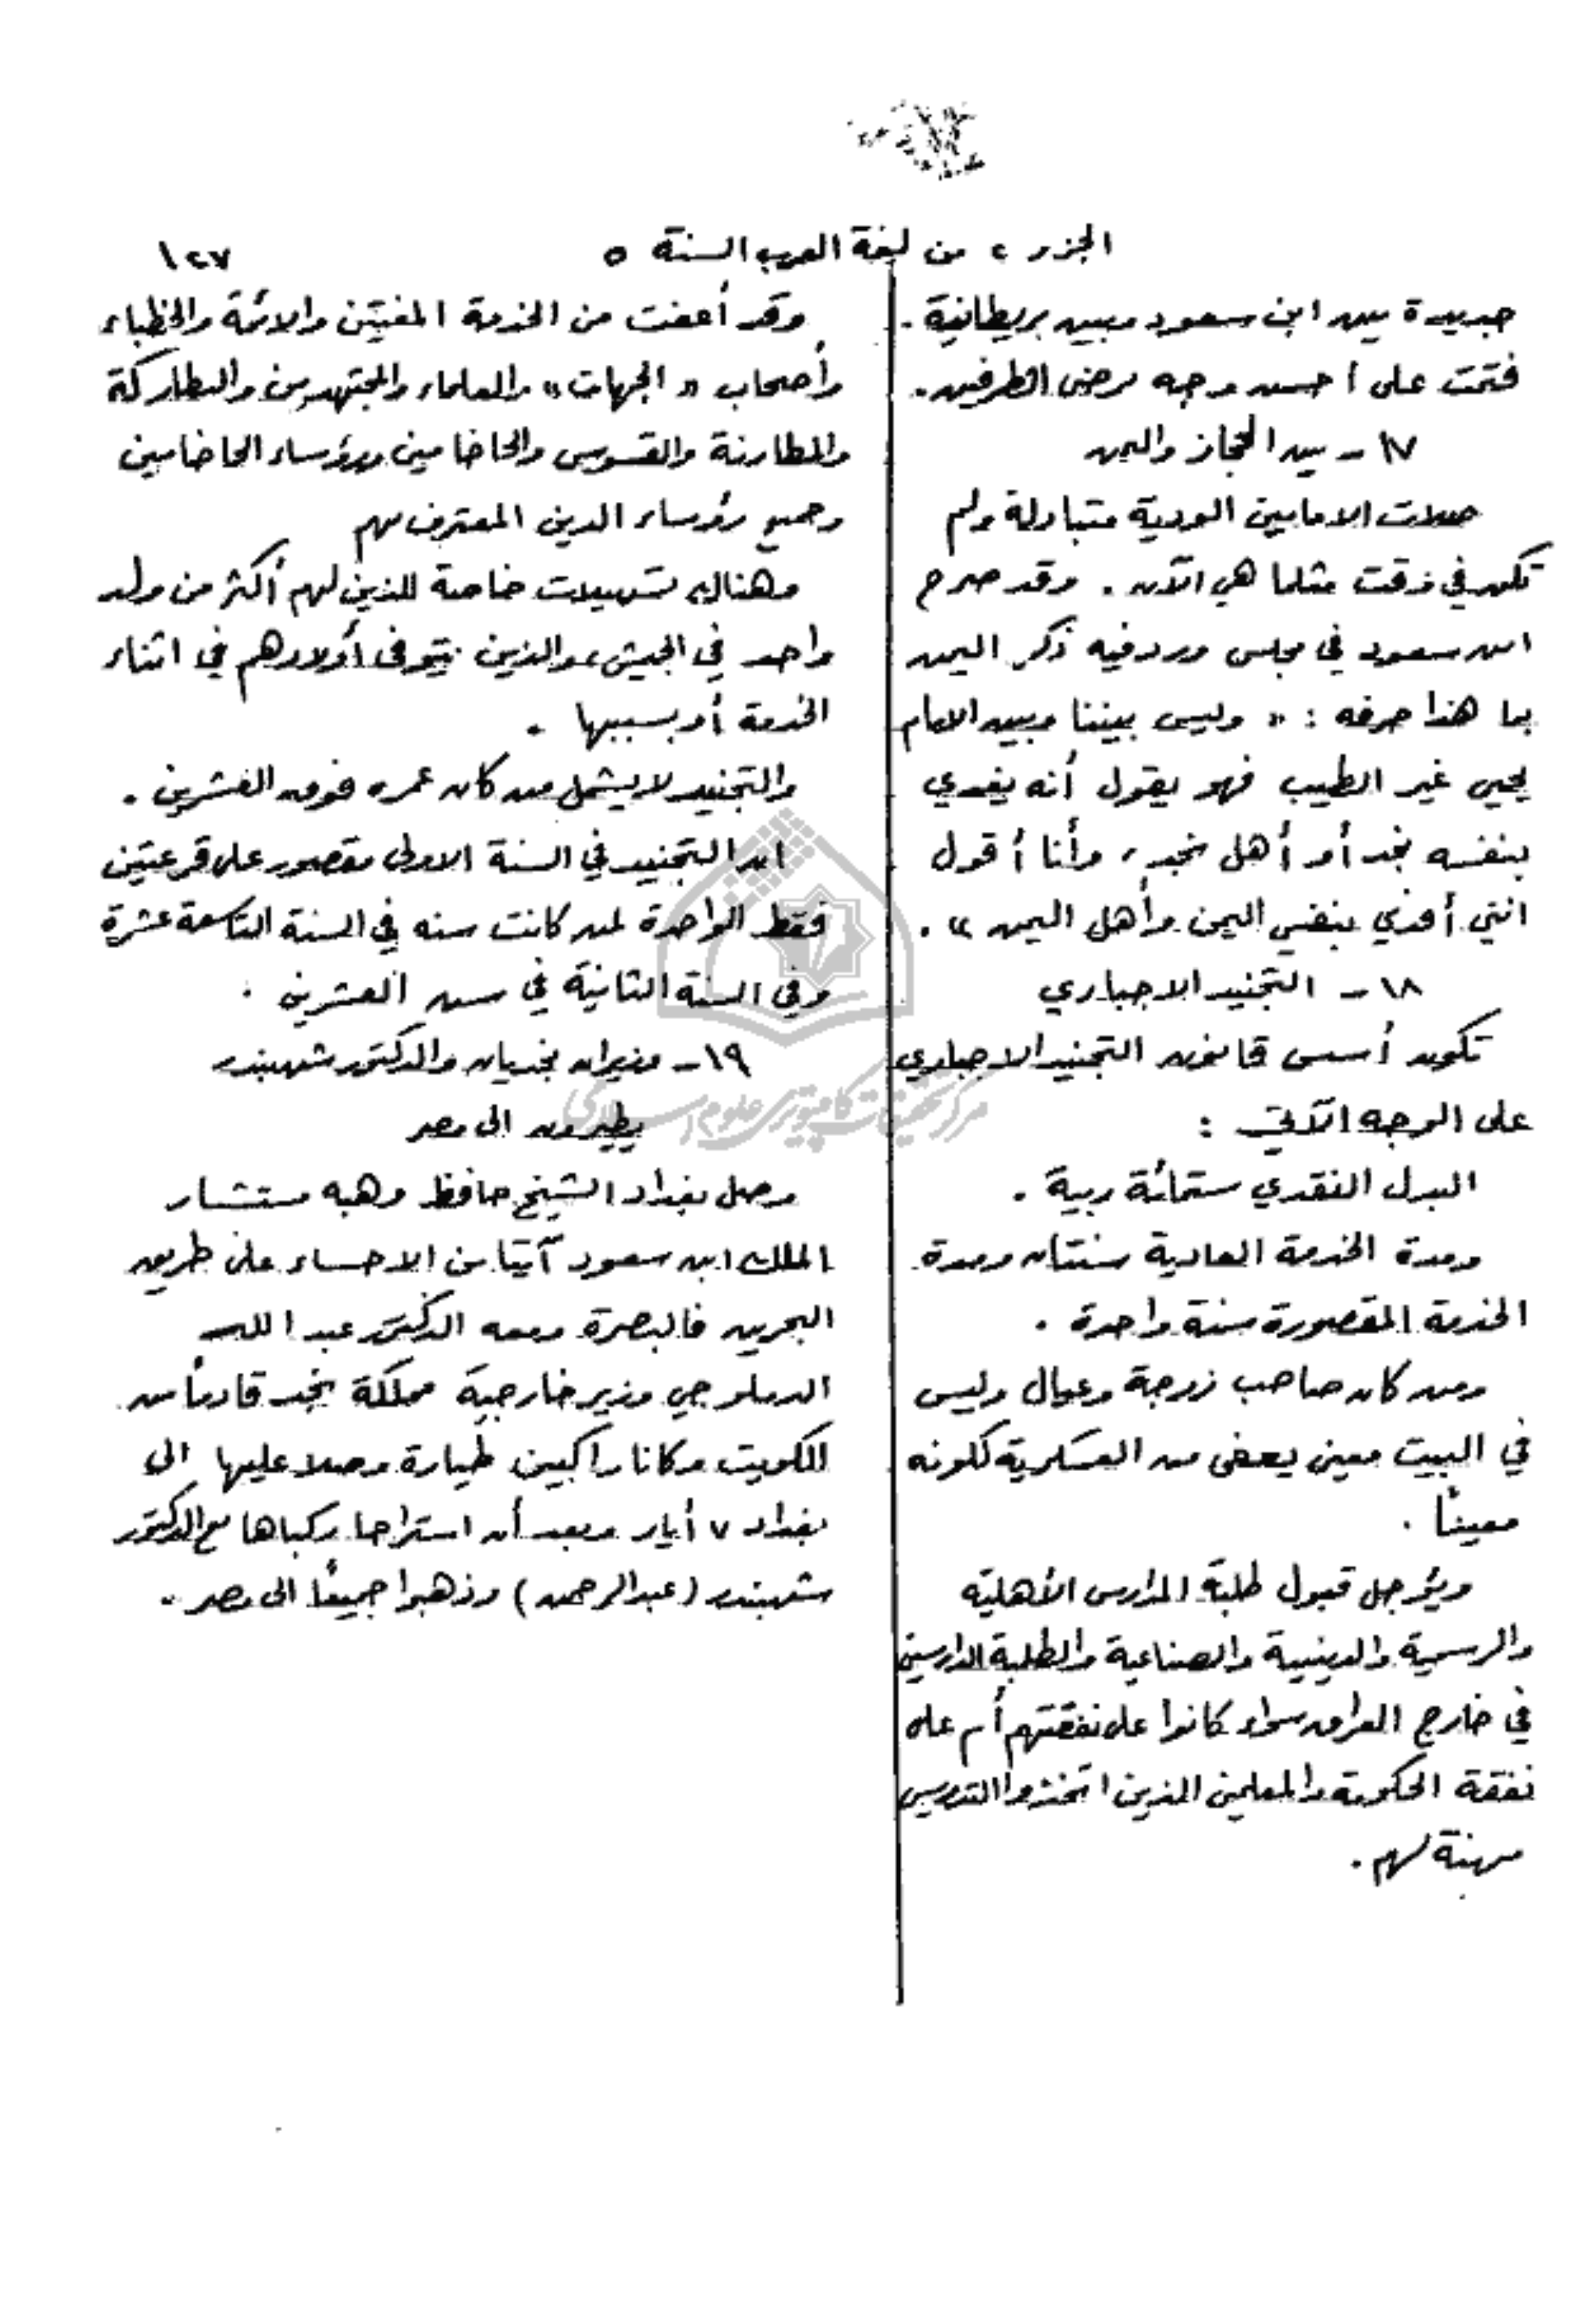 الجزء ٢ من لغة العرب السنة ٥
١٢٧
جديدة بين ابن سعود وبين بريطانية .
فتمت على أحسن وجه يرضي الطرفين .
١٧ ـ بين الحجاز واليمن
صلات الامامين الودية متبادلة ولم
تكن في وقت مثلما هي الآن . وقد صرح
ابن سعود في مجلس ورد فيه ذكر اليمن
بما هذا حرفه : « وليس بيننا وبين الامام
يحيى غير الطيب فهو يقول أنه يفدي
بنفسه نجد أو أهل نجد ، وأنا أقول
انني أفدي بنفسي اليمن وأهل اليمن » .
١٨ ـ التجنيد الاجباري
تكون أسس قانون التجنيد الاجباري
على الوجه الآتي :
البدل النقدي ستمائة ربية .
ومدة الخدمة العادية سنتان ومدة
الخدمة المقصورة سنة واحدة .
ومن كان صاحب زوجة وعيال وليس
في البيت معين يعفى من العسكرية لكونه
معيناً .
ويؤجل قبول طلبة المدارس الأهلية
والرسمية والدينية والصناعية والطلبة الدارسين
في خارج العراق سواء كانوا على نفقتهم أم على
نفقة الحكومة والمعلمين الذين اتخذوا التدريس
مهنة لهم .
وقد أعفت من الخدمة المفتين والائمة والخطباء
وأصحاب « الجهات » والعلماء والمجتهدين والبطاركة
والمطارنة والقسوس والحاخامين ورؤساء الحاخامين
وجميع رؤساء الدين المعترف بهم
وهناك تسهيلات خاصة للذين لهم أكثر من ولد
واحد في الجيش ، والذين يتوفى أولادهم في اثناء
الخدمة أو بسببها .
والتجنيد لا يشمل من كان عمره فوق العشرين .
ان التجنيد في السنة الاولى مقصور على قرعتين
فقط الواحدة لمن كانت سنه في السنة التاسعة عشرة
وفي السنة الثانية في سن العشرين .
١٩ ـ وزيران نجديان والدكتور شهبندر
يطيرون الى مصر
وصل بغداد الشيخ حافظ وهبه مستشار
الملك ابن سعود آتيا من الاحساء على طريق
البحرين فالبصرة ومعه الدكتور عبد الله
الدملوجي وزير خارجية مملكة نجد قادماً من
الكويت وكانا راكبين طيارة وصلا عليها الى
بغداد ٧ أيار وبعد أن استراحا ركباها مع الدكتور
شهبندر (عبد الرحمن) وذهبوا جميعاً الى مصر .
مركز تحقيقات كامپيوتري علوم اسلامي